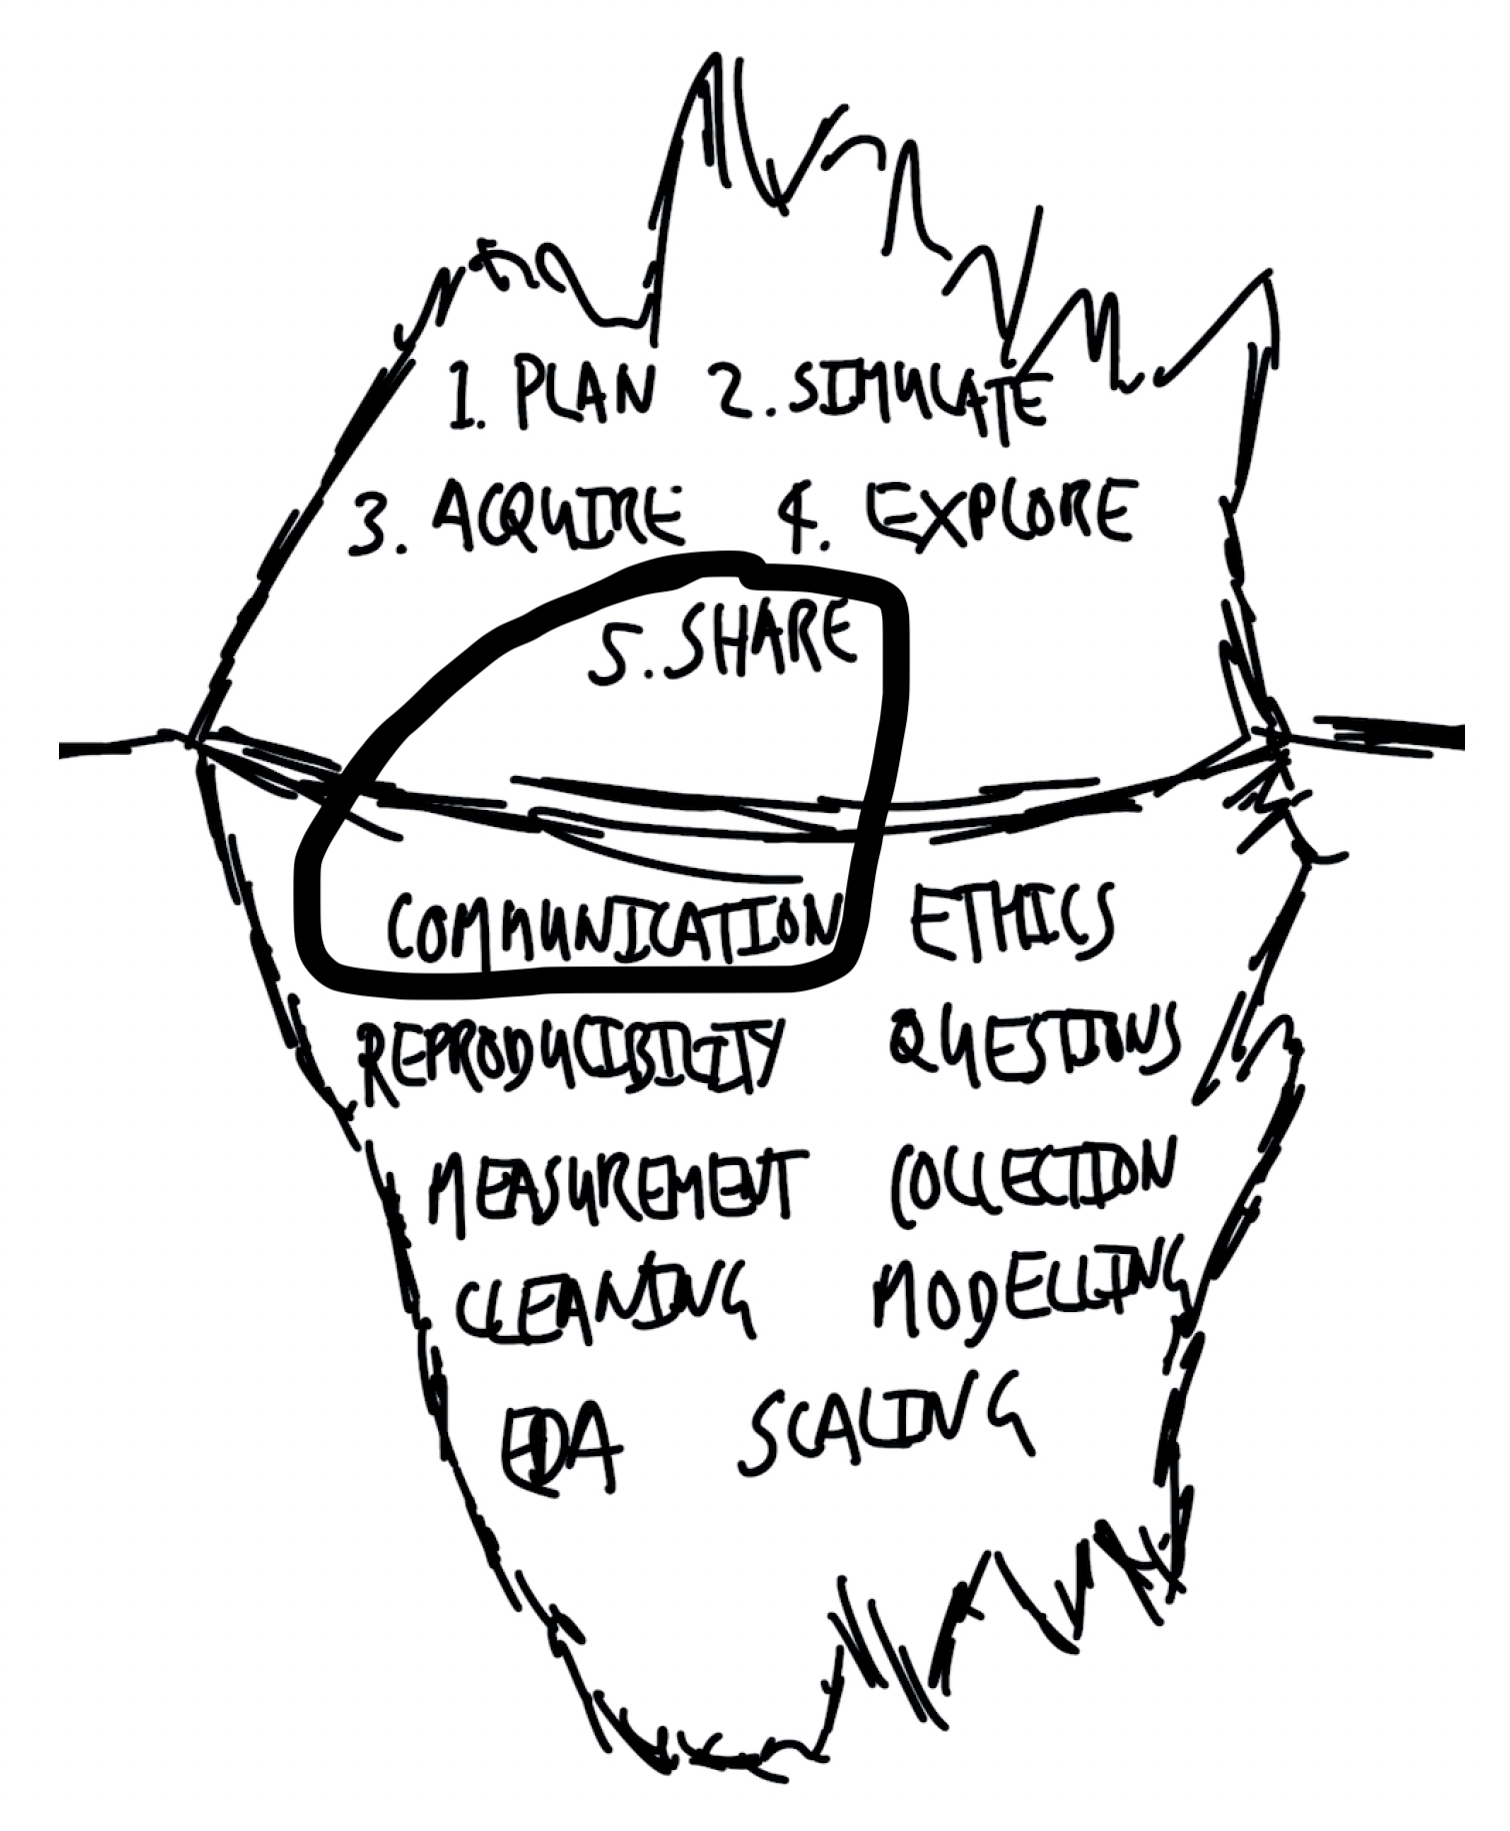 1. PLAN 2. SIMULATE
3. ACQUIRE 4. EXPLORE
5. SHARE
COMMUNICATION ETHICS
REPRODUCIBILITY QUESTIONS
MEASUREMENT COLLECTION
CLEANING MODELLING
EDA SCALING